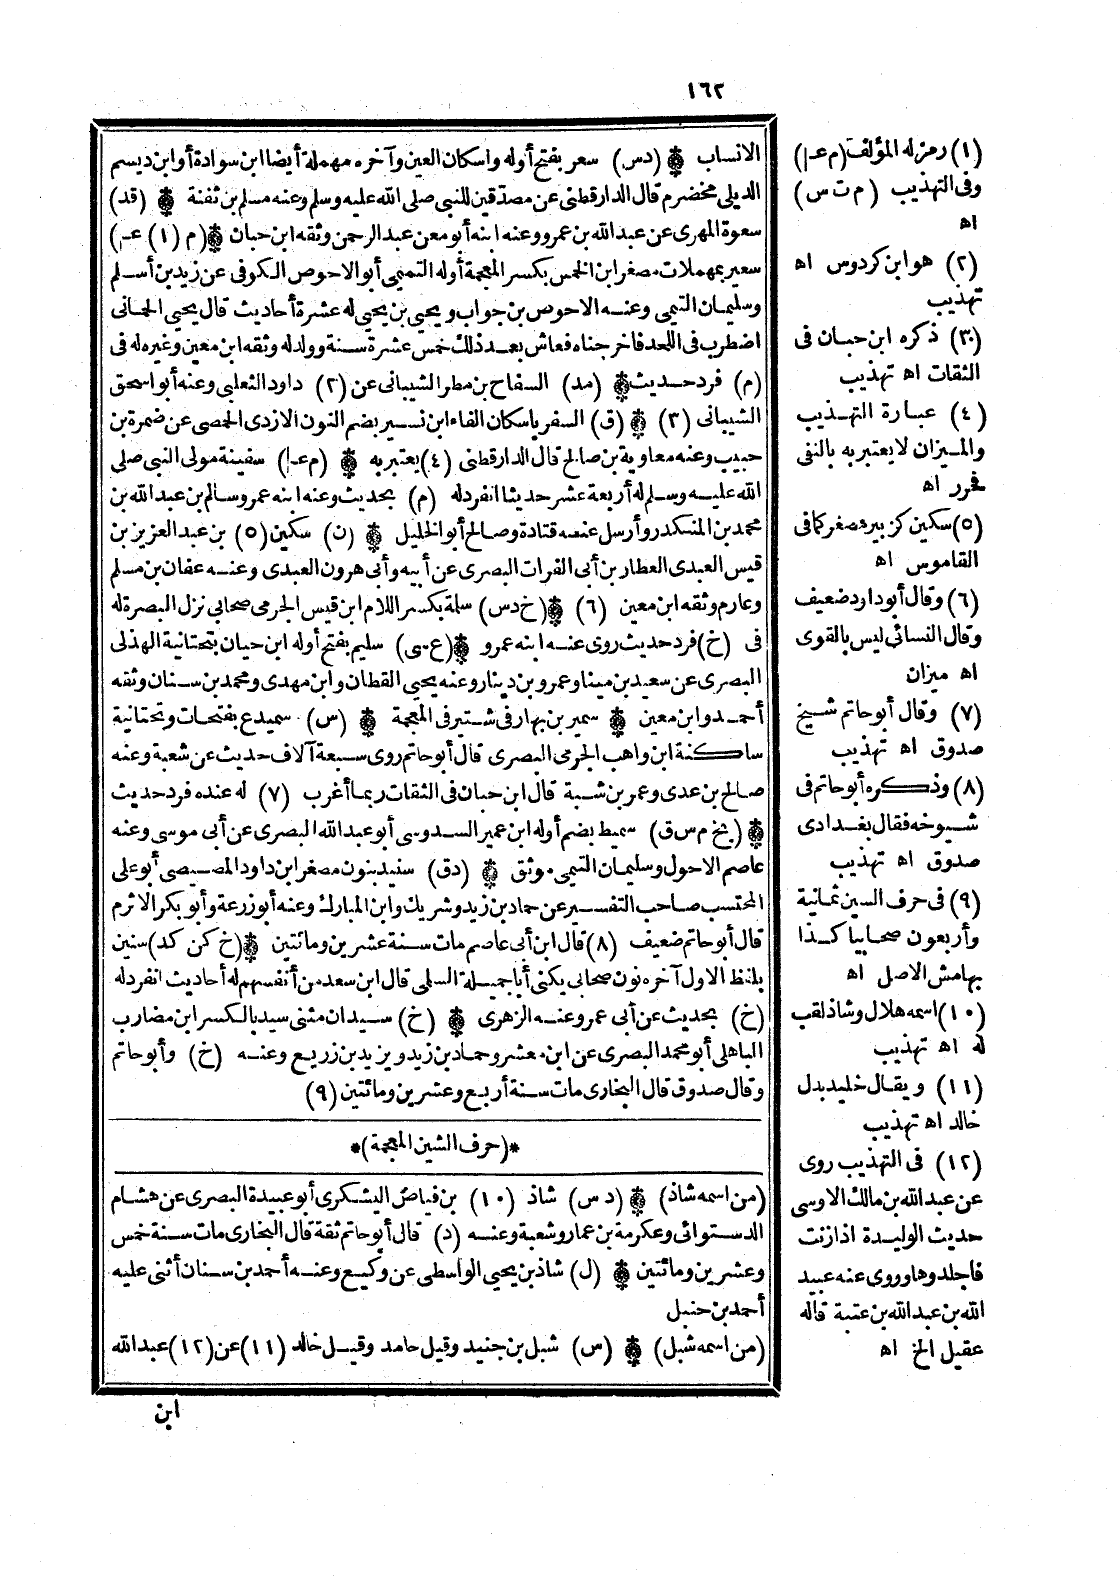 ١٦٢
الانساب (دس) سعر بفتح أوله واسكان العين وآخره مهملة أيضا ابن سوادة أو ابن ديسم
الديلى مخضرم قال الدارقطنى عن مصدّقين للنبى صلى الله عليه وسلم وعنه مسلم بن ثفنة (قد)
سعوة المهرى عن عبد الله بن عمرو وعنه ابنه أبو معن عبد الرحمن وثقه ابن حبان (م (١) عـ)
سعير بمهملات مصغر ابن الخمس بكسر المعجمة أوله التميمى أبو الاحوص الكوفى عن زيد بن أسلم
وسليمان التيمى وعنه الاحوص بن جواب ويحيى بن يحيى له عشرة أحاديث قال يحيى الحمانى
اضطرب فى اللحد فاخرجناه فعاش بعد ذلك خمس عشرة سنة وولد له وثقه ابن معين وغيره له فى
(م) فرد حديث (مد) السفاح بن مطر الشيبانى عن (٢) داود الثعلبى وعنه أبو اسحق
الشيبانى (٣) (ق) السفر باسكان الفاء ابن نسير بضم النون الازدى الحمصى عن ضمرة بن
حبيب وعنه معاوية بن صالح قال الدارقطنى (٤) يعتبر به (م عـ) سفينة مولى النبى صلى
الله عليه وسلم له أربعة عشر حديثا انفرد له (م) بحديث وعنه ابنه عمر وسالم بن عبد الله بن
محمد بن المنكدر وأرسل عنه قتادة وصالح أبو الخليل (ن) سكين (٥) بن عبد العزيز بن
قيس العبدى العطار بن أبى الفرات البصرى عن أبيه وأبى هرون العبدى وعنه عفان بن مسلم
وعارم وثقه ابن معين (٦) (خ دس) سلمة بكسر اللام ابن قيس الجرمى صحابى نزل البصرة له
فى (خ) فرد حديث روى عنه ابنه عمرو (ع‍ـى) سليم بفتح أوله ابن حيان بتحتانية الهذلى
البصرى عن سعيد بن مينا وعمرو بن دينار وعنه يحيى القطان وابن مهدى ومحمد بن سنان وثقه
أحمد وابن معين سمير بن نهار فى شتير فى المعجمة (س) سميدع بفتحات وتحتانية
ساكنة ابن واهب الجرمى البصرى قال أبو حاتم روى سبعة آلاف حديث عن شعبة وعنه
صالح بن عدى وعمر بن شبة قال ابن حبان فى الثقات ربما أغرب (٧) له عنده فرد حديث
(بخ م س ق) سميط بضم أوله ابن عمير السدوسى أبو عبد الله البصرى عن أبى موسى وعنه
عاصم الاحول وسليمان التيمى موثق (دق) سنيد بنون مصغر ابن داود المصيصى أبو على
المحتسب صاحب التفسير عن حماد بن زيد وشريك وابن المبارك وعنه أبو زرعة وأبو بكر الاثرم
قال أبو حاتم ضعيف (٨) قال ابن أبى عاصم مات سنة عشرين ومائتين (خ كن كد) سنين
بلفظ الاول آخره نون صحابى يكنى أبا جميلة السلمى قال ابن سعد من أنفسهم له أحاديث انفرد له
(خ) بحديث عن أبى عمر وعنه الزهرى (خ) سيدان مثنى سيد بالكسر ابن مضارب
الباهلى أبو محمد البصرى عن ابى معشر وحماد بن زيد ويزيد بن زريع وعنه (خ) وأبو حاتم
وقال صدوق قال البخارى مات سنة أربع وعشرين ومائتين (٩)
*(حرف الشين المعجمة)*
(من اسمه شاذ) (د س) شاذ (١٠) بن فياض اليشكرى أبو عبيدة البصرى عن هشام
الدستوائى وعكرمة بن عمار وشعبة وعنه (د) قال أبو حاتم ثقة قال البخارى مات سنة خمس
وعشرين ومائتين (ل) شاذ بن يحيى الواسطى عن وكيع وعنه أحمد بن سنان أثنى عليه
أحمد بن حنبل
(من اسمه شبل) (س) شبل بن جنيد وقيل حامد وقيل خالد (١١) عن (١٢) عبد الله
ابن
(١) رمز له المؤلف (م عـ)
وفى التهذيب (م ت س)
اه
(٢) هو ابن كردوس اه
تهذيب
(٣) ذكره ابن حبان فى
الثقات اه تهذيب
(٤) عبارة التهذيب
والميزان لا يعتبر به بالنفى
فحرر اه
(٥) سكين كزبير مصغر كما فى
القاموس اه
(٦) وقال أبو داود ضعيف
وقال النسائى ليس بالقوى
اه ميزان
(٧) وقال أبو حاتم شيخ
صدوق اه تهذيب
(٨) وذكره أبو حاتم فى
شيوخه فقال بغدادى
صدوق اه تهذيب
(٩) فى حرف السين ثمانية
وأربعون صحابيا كذا
بهامش الاصل اه
(١٠) اسمه هلال وشاذ لقب
له اه تهذيب
(١١) ويقال خليد بدل
خالد اه تهذيب
(١٢) فى التهذيب روى
عن عبد الله بن مالك الاوسى
حديث الوليدة اذا زنت
فاجلدوها وروى عنه عبيد
الله بن عبد الله بن عتبة قاله
عقيل الخ اه